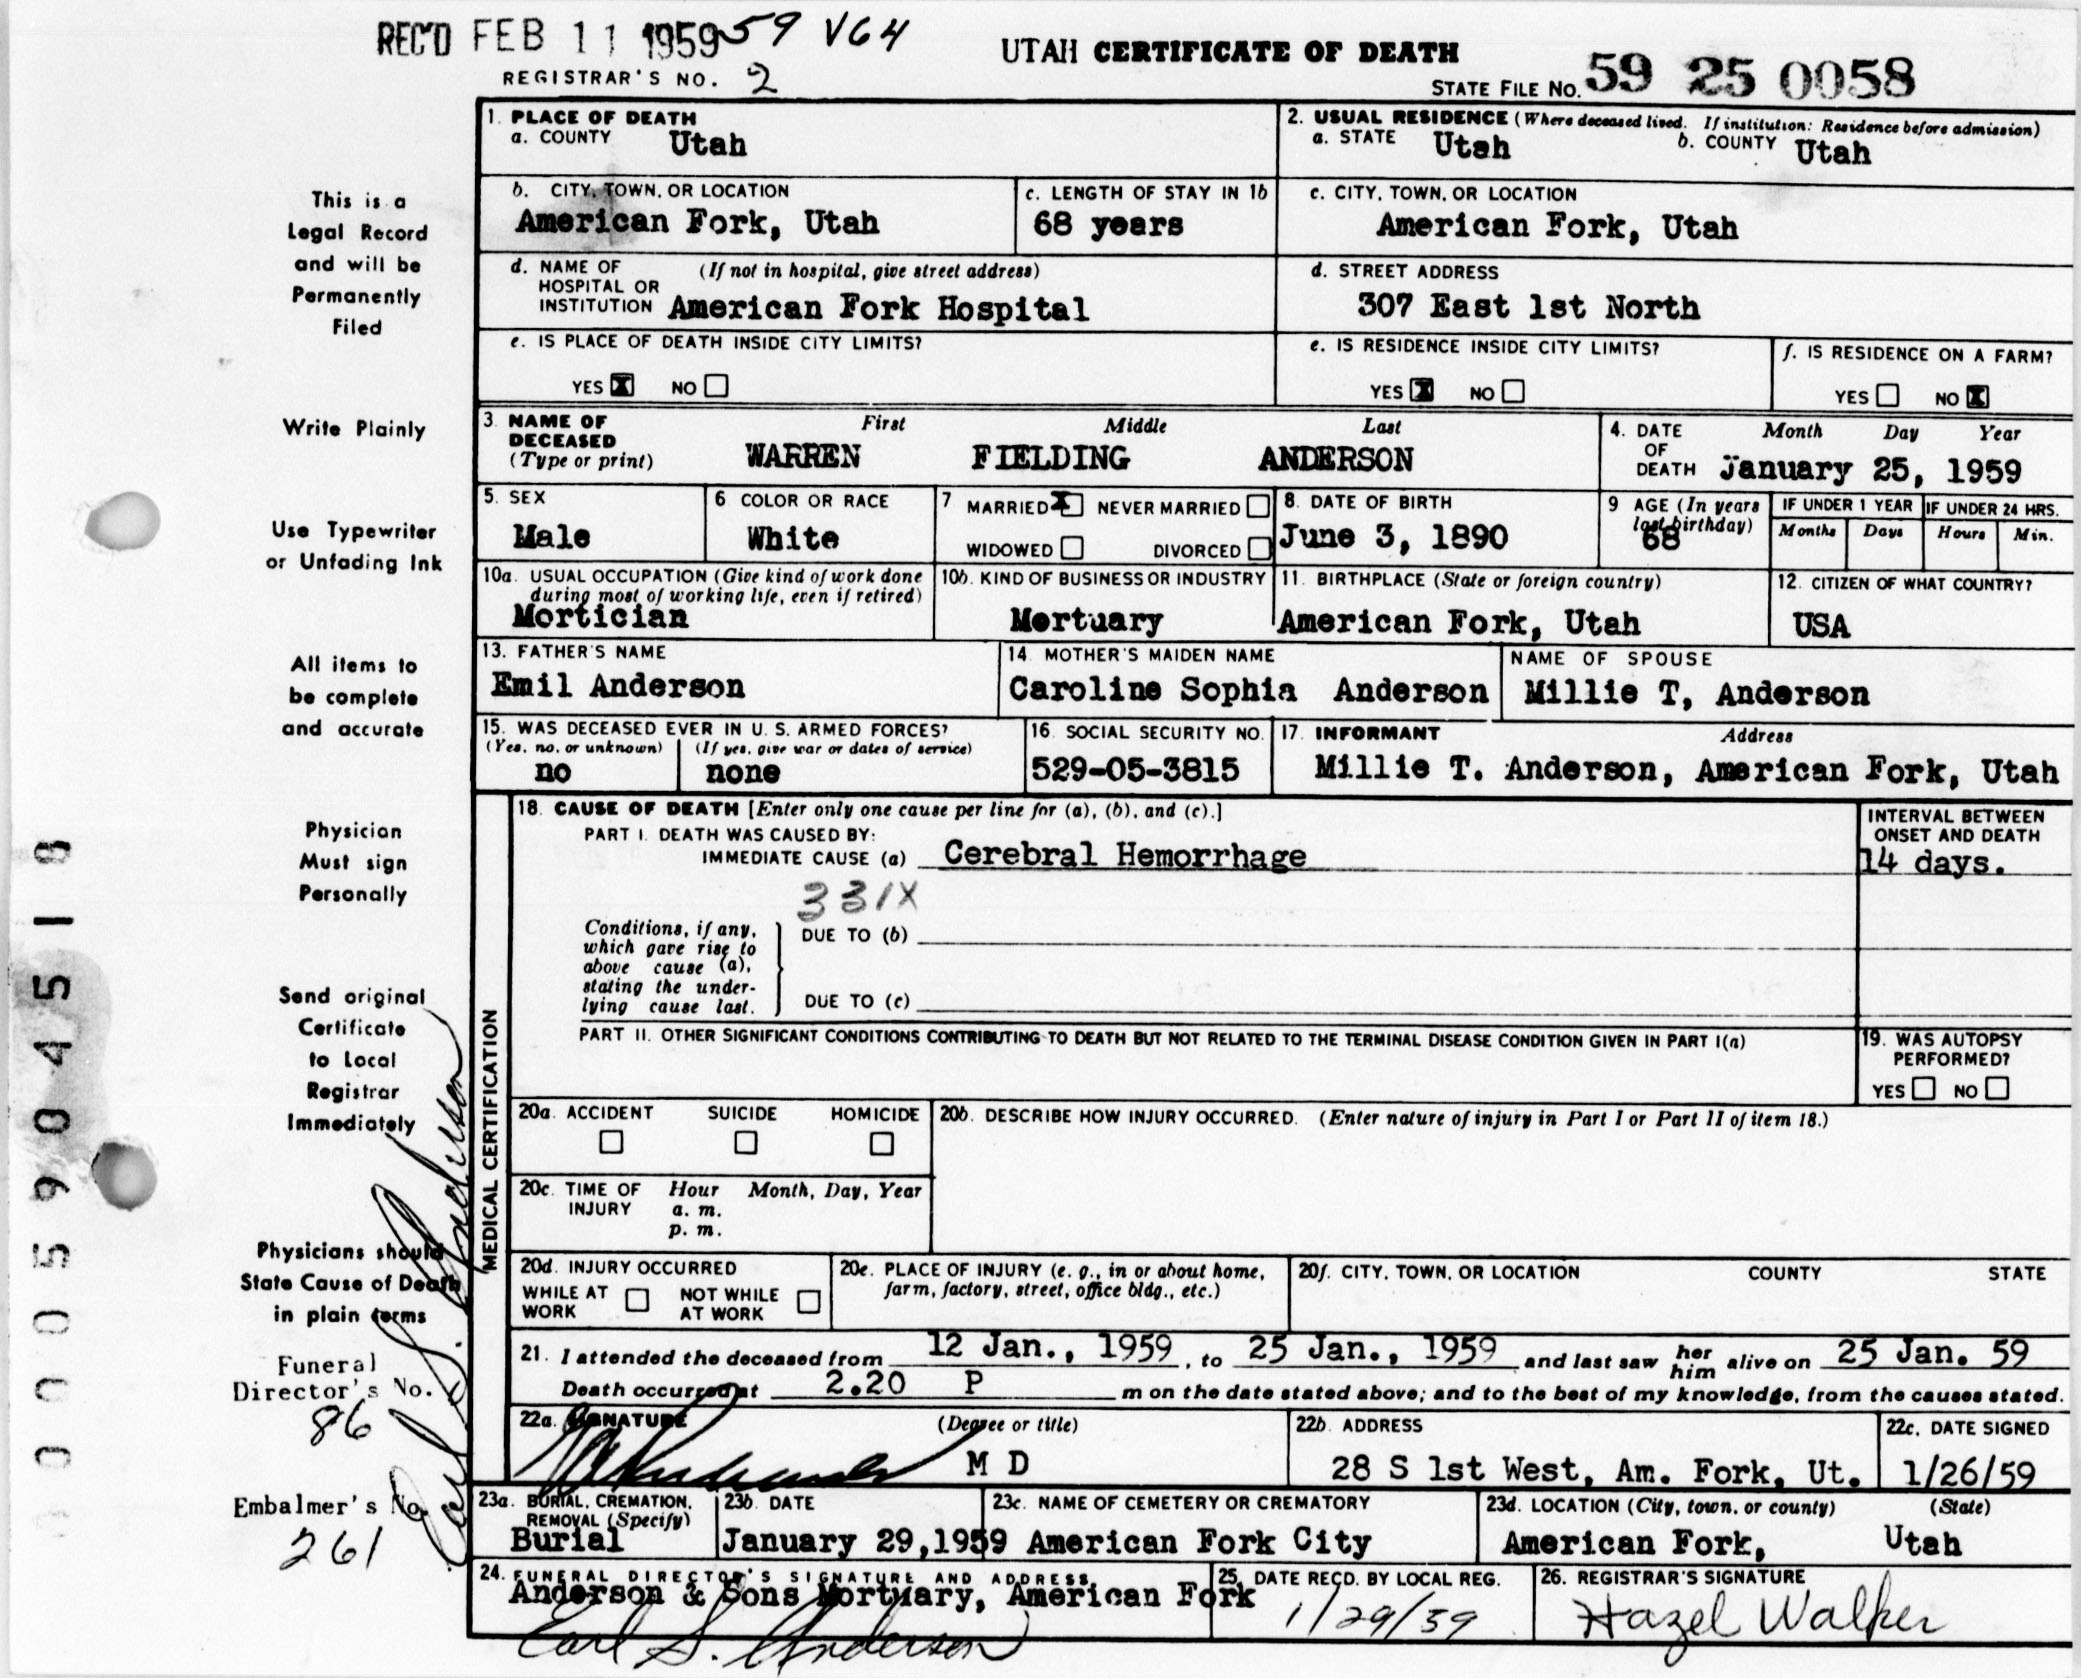 REC'D FEB 11 1959 59 V64
UTAH CERTIFICATE OF DEATH
REGISTRAR'S NO. 2
STATE FILE NO. 59 25 0058
This is a
Legal Record
and will be
Permanently
Filed
Write Plainly
Use Typewriter
or Unfading Ink
All items to
be complete
and accurate
Physician
Must sign
Personally
Send original
Certificate
to Local
Registrar
Immediately
Physicians should
State Cause of Death
in plain terms
Funeral
Director's No.
86
Embalmer's No.
261
Earl S. Anderson
0005904518
1. PLACE OF DEATH
a. COUNTY Utah
2. USUAL RESIDENCE (Where deceased lived. If institution: Residence before admission)
a. STATE Utah b. COUNTY Utah
b. CITY, TOWN, OR LOCATION
American Fork, Utah
c. LENGTH OF STAY IN 1b
68 years
c. CITY, TOWN, OR LOCATION
American Fork, Utah
d. NAME OF (If not in hospital, give street address)
HOSPITAL OR
INSTITUTION American Fork Hospital
d. STREET ADDRESS
307 East 1st North
e. IS PLACE OF DEATH INSIDE CITY LIMITS?
YES X NO
e. IS RESIDENCE INSIDE CITY LIMITS?
YES X NO
f. IS RESIDENCE ON A FARM?
YES NO X
3. NAME OF DECEASED (Type or print)
First Middle Last
WARREN FIELDING ANDERSON
4. DATE OF DEATH Month Day Year
January 25, 1959
5. SEX
Male
6. COLOR OR RACE
White
7. MARRIED X NEVER MARRIED
WIDOWED DIVORCED
8. DATE OF BIRTH
June 3, 1890
9. AGE (In years last birthday)
68
IF UNDER 1 YEAR
Months Days
IF UNDER 24 HRS.
Hours Min.
10a. USUAL OCCUPATION (Give kind of work done
during most of working life, even if retired)
Mortician
10b. KIND OF BUSINESS OR INDUSTRY
Mortuary
11. BIRTHPLACE (State or foreign country)
American Fork, Utah
12. CITIZEN OF WHAT COUNTRY?
USA
13. FATHER'S NAME
Emil Anderson
14. MOTHER'S MAIDEN NAME
Caroline Sophia Anderson
NAME OF SPOUSE
Millie T, Anderson
15. WAS DECEASED EVER IN U. S. ARMED FORCES?
(Yes, no, or unknown) (If yes, give war or dates of service)
no none
16. SOCIAL SECURITY NO.
529-05-3815
17. INFORMANT Address
Millie T. Anderson, American Fork, Utah
MEDICAL CERTIFICATION
18. CAUSE OF DEATH [Enter only one cause per line for (a), (b), and (c).]
PART I. DEATH WAS CAUSED BY:
IMMEDIATE CAUSE (a) Cerebral Hemorrhage
INTERVAL BETWEEN
ONSET AND DEATH
14 days.
331X
Conditions, if any,
which gave rise to
above cause (a),
stating the under-
lying cause last.
DUE TO (b)
DUE TO (c)
PART II. OTHER SIGNIFICANT CONDITIONS CONTRIBUTING TO DEATH BUT NOT RELATED TO THE TERMINAL DISEASE CONDITION GIVEN IN PART I(a)
19. WAS AUTOPSY
PERFORMED?
YES NO
20a. ACCIDENT SUICIDE HOMICIDE
20b. DESCRIBE HOW INJURY OCCURRED. (Enter nature of injury in Part I or Part II of item 18.)
20c. TIME OF INJURY Hour Month, Day, Year
a. m.
p. m.
20d. INJURY OCCURRED
WHILE AT WORK NOT WHILE AT WORK
20e. PLACE OF INJURY (e. g., in or about home,
farm, factory, street, office bldg., etc.)
20f. CITY, TOWN, OR LOCATION COUNTY STATE
21. I attended the deceased from 12 Jan., 1959, to 25 Jan., 1959 and last saw her him alive on 25 Jan. 59
Death occurred at 2.20 P m on the date stated above; and to the best of my knowledge, from the causes stated.
22a. SIGNATURE (Degree or title)
M D
22b. ADDRESS
28 S 1st West, Am. Fork, Ut.
22c. DATE SIGNED
1/26/59
23a. BURIAL, CREMATION,
REMOVAL (Specify)
Burial
23b. DATE
January 29, 1959
23c. NAME OF CEMETERY OR CREMATORY
American Fork City
23d. LOCATION (City, town, or county) (State)
American Fork, Utah
24. FUNERAL DIRECTOR'S SIGNATURE AND ADDRESS
Anderson & Sons Mortuary, American Fork
Earl S. Anderson
25. DATE RECD. BY LOCAL REG.
1/29/59
26. REGISTRAR'S SIGNATURE
Hazel Walker